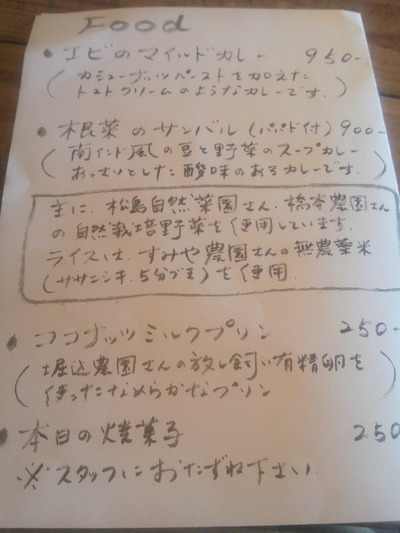 Food
• エビのマイルドカレー 950-
(カシューナッツペーストを加えた
トマトクリームのようなカレーです。)
• 根菜のサンバル(パパド付) 900-
(南インド風の豆と野菜のスープカレー
あっさりとした酸味のあるカレーです。)
主に、松島自然菜園さん、橋本農園さん
の自然栽培野菜を使用しています。
ライスは、すみや農園さんの無農薬米
(ササニシキ、5分づき)を使用
• ココナッツミルクプリン 250-
(堀込農園さんの放し飼い有精卵を
使ったなめらかなプリン)
• 本日の焼菓子 250
※スタッフにおたずね下さい